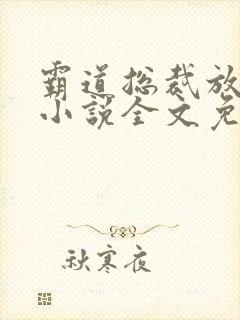 霸道总裁放
小说全文免
秋寒夜